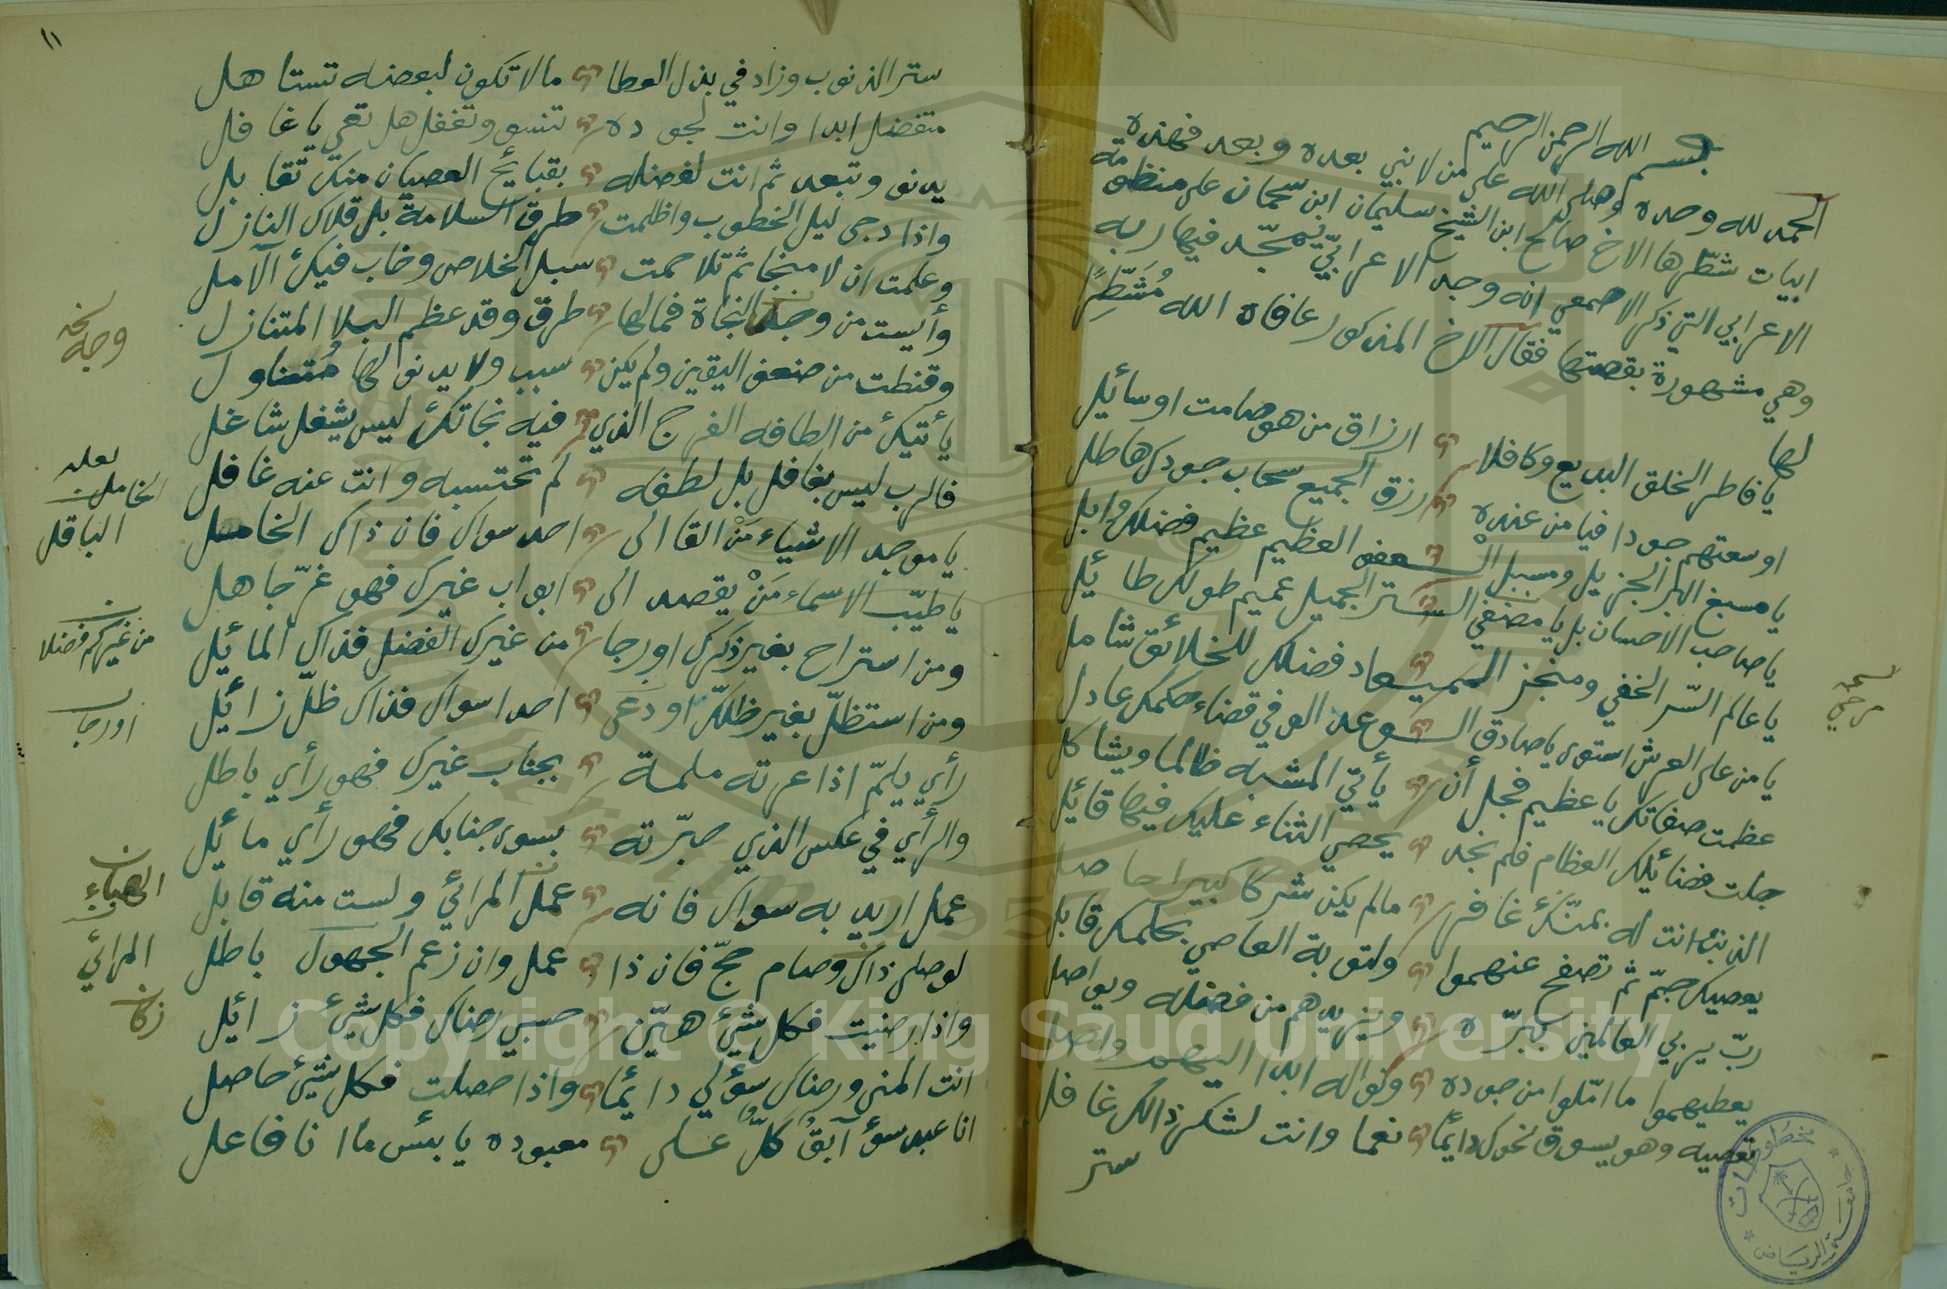 بسم الله الرحمن الرحيم
الحمد لله وحده وصلى الله على من لا نبي بعده وبعد فهذه
ابيات شطّرها الاخ صالح ابن الشيخ سليمان ابن سحمان على منظومة
الاعرابي التي ذكر الاصمعي انه وجد الاعرابيّ يمجّد فيها ربه
وهي مشهورة بقصتها فقال الاخ المذكور عافاه الله مُشَطِّرًا
لها
يا فاطر الخلق البديع وكافلا ارزاق من هو صامت او سائل
اوسعتهم جودا فيا من عنده رزق الجميع سحاب جودك هاطل
يا مسبغ البر الجزيل ومسبل العفو العظيم عظيم فضلك وابل
يا صاحب الاحسان بل يا مضفي الستر الجميل عميم طولك طائل
يا عالم السّر الخفي ومنجز الميعاد فضلك للخلائق شامل
يا من على العرش استوى يا صادق الوعد الوفي قضاء حكمك عادل
عظمت صفاتك يا عظيم فجل أن يأتي المشبه ظالما ويشاكل
جلت فضائلك العظام فلم نجد يحصي الثناء عليك فيها قائل
الذنب انت له بمنّك غافر ما لم يكن شركا كبيرا حاصل
يعصيك جمّ ثم تصفح عنهموا ولتوبة العاصي بحلمك قابل
ربّ يربي العالمين ببرّه ويزيدهم من فضله ويواصل
يعطيهموا ما امّلوا من جوده ونواله ابدا اليهم واصل
تعصيه وهو يسوق نحوك دايمًا نعما وانت لشكر ذالك غافل
ستر
نسخه
مرخي
١١
ستر الذنوب وزاد في بذل العطا ما لا تكون لبعضه تستاهل
متفضل ابدا وانت لجوده تنسى وتغفل هل تعي يا غافل
يدنو وتبعد ثم انت لفضله بقبائح العصيان منك تقابل
واذا دجى ليل الخطوب واظلمت طرق السلامة بل قلاك النازل
وعلمت ان لا منجا ثم تلاحمت سبل الخلاص وخاب فيك الآمل
وأيست من وجد النجاة فمالها طرق وقد عظم البلا المتنازل
وقنطت من ضعف اليقين ولم يكن سبب ولا يدنو لها مُتناول
يأتيك من الطافه الفرج الذي فيه نجاتك ليس يشغل شاغل
فالرب ليس بغافل بل لطفه لم تحتسبه وانت عنه غافل
يا موجد الاشياء مَنْ القا الى احد سواك فان ذاك الخامل
يا طيّب الاسماء مَنْ يقصد الى ابواب غيرك فهو غرّ جاهل
ومن استراح بغير ذكرك او رجا من غيرك الفضل فذاك المائل
ومن استظلّ بغير ظلك او دعى احدا سواك فذاك ظلّ زائل
رأي يلمّ اذا عرته ملمة بجناب غيرك فهو رأي باطل
والرأي في عكس الذي صبّرته بسوى جنابك فهو رأي مائل
عمل اريد به سواك فانه عمل المرائي ولست منه قابل
لو صلى ذاك وصام حجّ فان ذا عمل وان زعم الجهول باطل
واذا رضيت فكل شيئ هيّن حسبي رضاك فكل شيئ زائل
انت المنى ورضاك سؤلي دائما واذا حصلت فكل شيئ حاصل
انا عبد سوؤ آبقُ كَلُّ على معبوده يا بئس ما انا فاعل
نسخه
وجه
لعله
الخامل
الباقل
من غيركم فضلا
او رجا
الهباء
المرائي
زكا